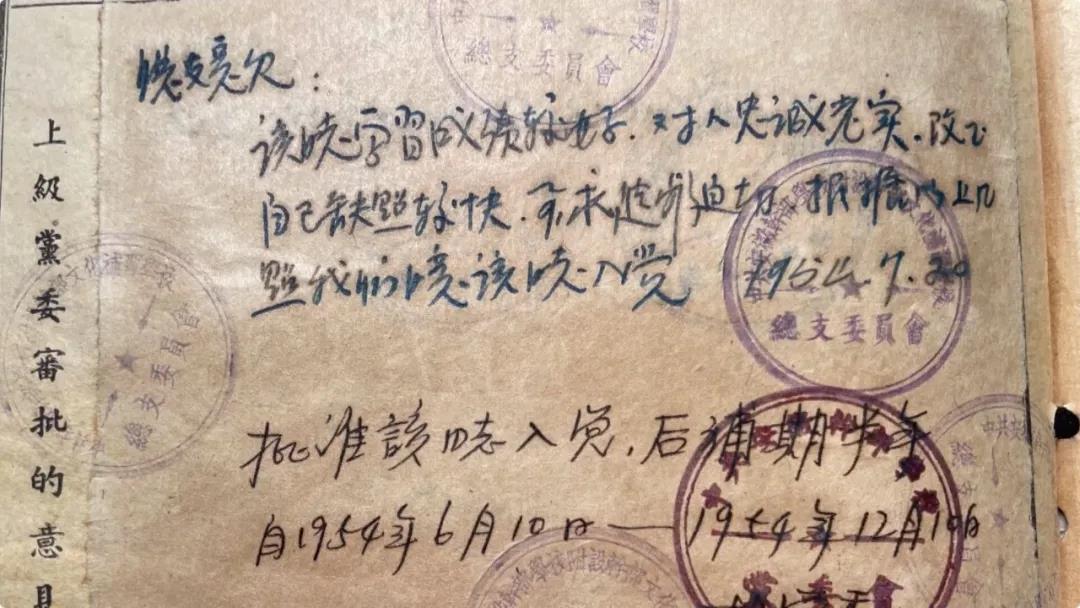 上級黨委審批的意見
總支委員會
总支意见:
该同志学習成绩较好.对人忠诚老实.改正
自己缺點较快.要求進步迫切.根據以上几
點我们同意该同志入党 1954.7.20
總支委員會
總支委員會
批准該同志入党,后補期半年
自1954年6月10日—1954年12月10日
黨委會